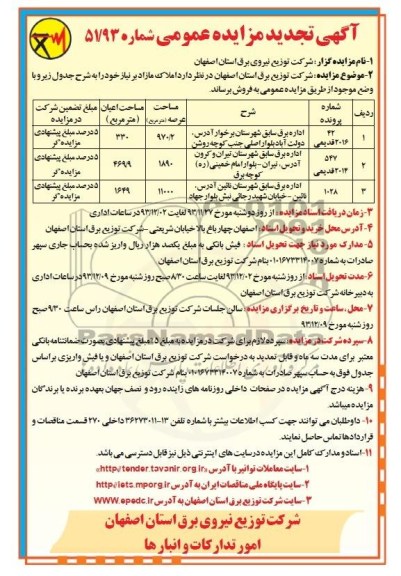 آگهی تجدید مزایده عمومی شماره ۵۱/۹۳
۱-نام مزایده گزار: شرکت توزیع نیروی برق استان اصفهان
۲-موضوع مزایده: شرکت توزیع برق استان اصفهان در نظر دارد املاک مازاد بر نیاز خود را به شرح جدول زیر و با
وضع موجود از طریق مزایده عمومی به فروش برساند.
ردیف شماره پرونده شرح مساحت عرصه (مترمربع) مساحت اعیان (مترمربع) مبلغ تضمین شرکت در مزایده
۱ ۴۲ ۲۰۱۶قدیمی اداره برق سابق شهرستان برخوار آدرس، دولت آباد بلوار اصلی جنب کوچه روشن ۹۷۰/۲ ۳۳۰ ده درصد مبلغ پیشنهادی مزایده گر
۲ ۵۴۷ ۲۰۱۴قدیمی اداره برق سابق شهرستان تیران و کرون آدرس، تیران - بلوار امام خمینی (ره) کوچه برق ۱۸۹۰ ۴۶۹/۹ ده درصد مبلغ پیشنهادی مزایده گر
۳ ۱۰۲۸ اداره برق سابق شهرستان نائین آدرس، نائین - خیابان شهید رجائی نبش بلوار جهاد ۱۱۰۰۰ ۱۶۴۹ ده درصد مبلغ پیشنهادی مزایده گر
۳-زمان دریافت اسناد مزایده: از روز دوشنبه مورخ ۹۳/۱۱/۲۷ لغایت ۹۳/۱۲/۰۲ در ساعات اداری
۴-آدرس محل خرید و تحویل اسناد: اصفهان چهارباغ بالا خیابان شریعتی - شرکت توزیع برق استان اصفهان
۵-مدارک مورد نیاز جهت تحویل اسناد: فیش بانکی به مبلغ یکصد هزار ریال واریز شده بحساب جاری سپهر
صادرات به شماره ۰۱۰۱۶۷۳۳۱۴۰۰۷ بنام شرکت توزیع برق استان اصفهان
۶-مدت تحویل اسناد: از روز شنبه مورخ ۹۳/۱۲/۰۲ لغایت ساعت ۸/۳۰ صبح روز شنبه مورخ ۹۳/۱۲/۰۹ در ساعات اداری
به دبیرخانه شرکت توزیع برق استان اصفهان
۷-محل، ساعت و تاریخ برگزاری مزایده: سالن جلسات شرکت توزیع برق استان اصفهان راس ساعت ۹:۳۰ صبح
روز شنبه مورخ ۹۳/۱۲/۰۹
۸-سپرده شرکت در مزایده: سپرده لازم برای شرکت در مزایده به مبلغ ده٪ مبلغ پیشنهادی بصورت ضمانتنامه بانکی
معتبر برای مدت سه ماه و قابل تمدید به درخواست شرکت توزیع برق استان اصفهان و یا فیش واریزی بر اساس
جدول فوق به حساب سپهر صادرات به شماره ۰۱۰۱۶۷۳۳۱۴۰۰۷ بنام شرکت توزیع برق استان اصفهان
۹- هزینه درج آگهی مزایده در صفحات داخلی روزنامه های زاینده رود و نصف جهان بعهده برنده یا برندگان
مزایده میباشد.
۱۰- داوطلبان می توانند جهت کسب اطلاعات بیشتر با شماره تلفن ۱۳-۳۶۲۷۳۰۱۱ داخلی ۲۷۰ قسمت مناقصات و
قراردادها تماس حاصل نمایند.
۱۱- اسناد و مدارک کامل این مزایده در سایت های اینترنتی ذیل نیز قابل دسترسی می باشد.
۱-سایت معاملات توانیر با آدرس «http://tender.tavanir.org.ir»
۲-سایت پایگاه ملی مناقصات ایران به آدرس http://iets.mporg.ir
۳-سایت شرکت توزیع برق استان اصفهان به آدرس WWW.epedc.ir
شرکت توزیع نیروی برق استان اصفهان
امور تدارکات و انبارها
ParsNamadData